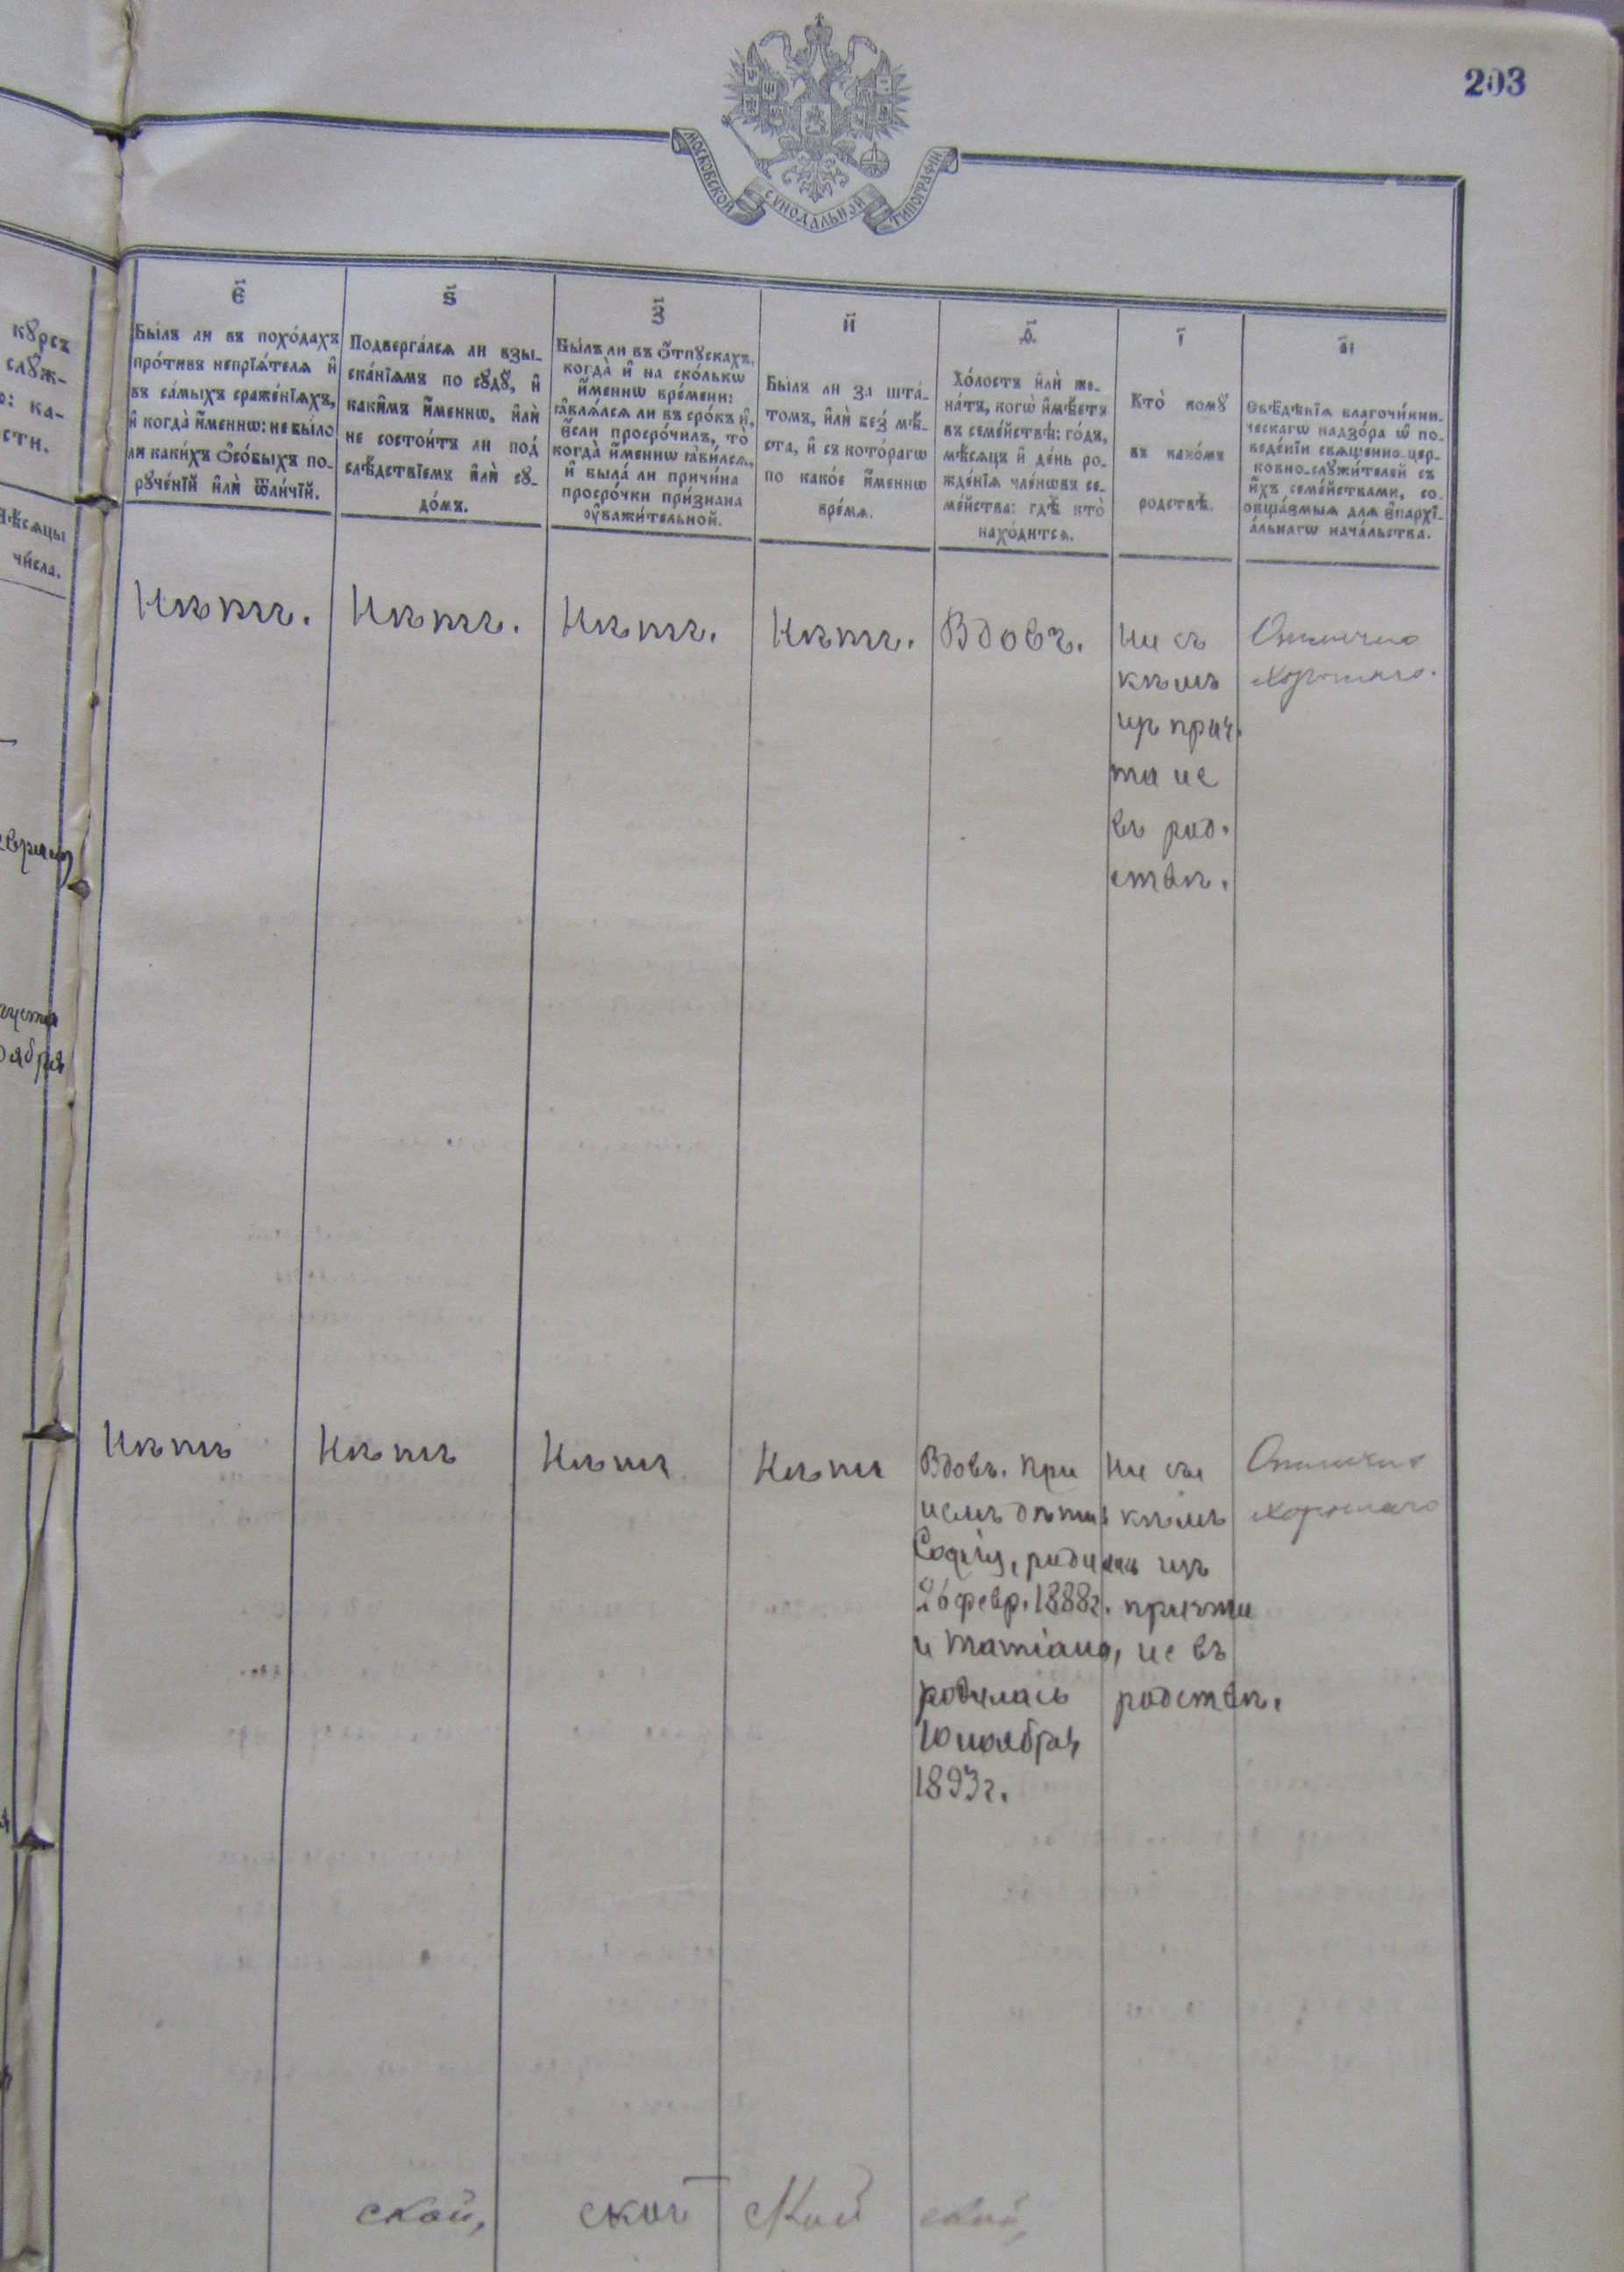 203
МОСКОВСКОЙ СѴНОДАЛЬНОЙ ТИПОГРАФІИ
кꙋрсъ
слꙋж-
ка-
сти.
мѣсяцы
чи́сла.
є҃
Бы́лъ ли въ похо́дахъ
про́тивъ непрїѧ́телѧ и҆
въ са́мыхъ сраже́нїѧхъ,
и҆ когда̀ и҆́меннѡ: не бы́ло
ли каки́хъ ѻ҆со́быхъ по-
рꙋче́нїй и҆лѝ ѿли́чїй.
ѕ҃
Подверга́лсѧ ли взы-
ска́нїѧмъ по сꙋдꙋ̀, и҆
каки̑мъ и҆́меннѡ, и҆лѝ
не состои́тъ ли под̾
слѣ́дствїемъ и҆лѝ сꙋ-
до́мъ.
з҃
Бы́лъ ли въ ѻ҆́тпꙋскахъ,
когда̀ и҆ на ско́лькѡ
и҆́меннѡ вре́мени:
ꙗ҆влѧ́лсѧ ли въ сро́къ и҆,
є҆́сли просро́чилъ, то̀
когда̀ и҆́меннѡ ꙗ҆ви́лсѧ,
и҆ была́ ли причи́на
просро́чки при́знана
ᲂу҆важи́тельной.
и҃
Бы́лъ ли за шта́-
томъ, и҆лѝ без̾ мѣ́-
ста, и҆ съ кото́рагѡ
по како́е и҆́меннѡ
вре́мѧ.
ѳ҃
Хо́лостъ и҆лѝ же-
на́тъ, когѡ̀ и҆мѣ́етъ
въ семе́йствѣ: го́дъ,
мѣ́сѧцъ и҆ де́нь ро-
жде́нїѧ чле́нѡвъ се-
ме́йства: гдѣ̀ кто̀
нахо́дитсѧ.
і҃
Кто̀ комꙋ̀
въ како́мъ
родствѣ̀.
а҃і
Свѣ́дѣнїѧ благочи́нни-
ческагѡ надзо́ра ѡ҆ по-
веде́нїи свѧще́нно-цер-
ко́вно-слꙋжи́телей съ
и҆́хъ семе́йствами, со-
ѡбща́емыѧ для є҆пархї-
а́льнагѡ нача́льства.
Нѣтъ.
Нѣтъ.
Нѣтъ.
Нѣтъ.
Вдовъ.
Ни съ
кѣмъ
изъ прич.
та не
въ род.
ствѣ.
Отлично
хорошаго.
Нѣтъ
Нѣтъ
Нѣтъ
Нѣтъ
Вдовъ. При
немъ дѣти:
Софія, родилась
26 февр. 1888г.
и Татіана,
родилась
10 ноября
1893г.
Ни съ
кѣмъ
изъ
причта
не въ
родствѣ.
Отлично
хорошаго
ской,
ской
ской
ской,